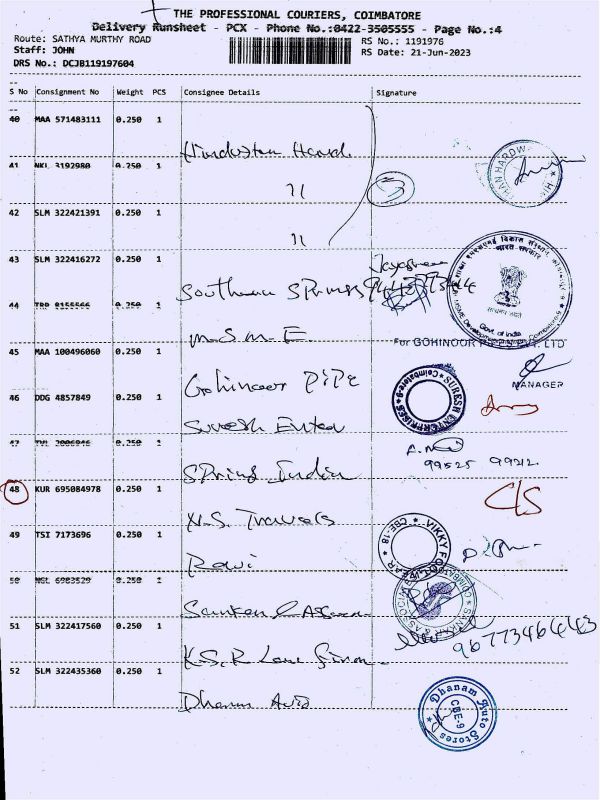 THE PROFESSIONAL COURIERS, COIMBATORE
Delivery Runsheet - PCX - Phone No.:0422-3505555 - Page No.:4
Route: SATHYA MURTHY ROAD RS No.: 1191976
Staff: JOHN RS Date: 21-Jun-2023
DRS No.: DCJB119197604
S No Consignment No Weight PCS Consignee Details Signature
40 MAA 571483111 0.250 1
Hindustan Hard
41 NKL 3192980 0.250 1
11
42 SLM 322421391 0.250 1
11
43 SLM 322416272 0.250 1
Southern Springs
44 TRP 0.250 1
M.S.M.E.
Govt. of India
For GOHINOOR PIPES PVT. LTD
45 MAA 100496060 0.250 1
Gohinoor Pipe
MANAGER
46 DDG 4857849 0.250 1
SURESH ENTERPRISES Coimbatore-9
Suresh Enter
47 TVL 0.250 1
99525 99212
Spring India
48 KUR 695084978 0.250 1
N.S. Travels
49 TSI 7173696 0.250 1
VIKKY FOOTWEAR CBE-18
Ravi
50 NGL 6983529 0.250 1
51 SLM 322417560 0.250 1
9677346443
K.S.R
52 SLM 322435360 0.250 1
Dhanam Auto
Dhanam Auto Stores CBE-9